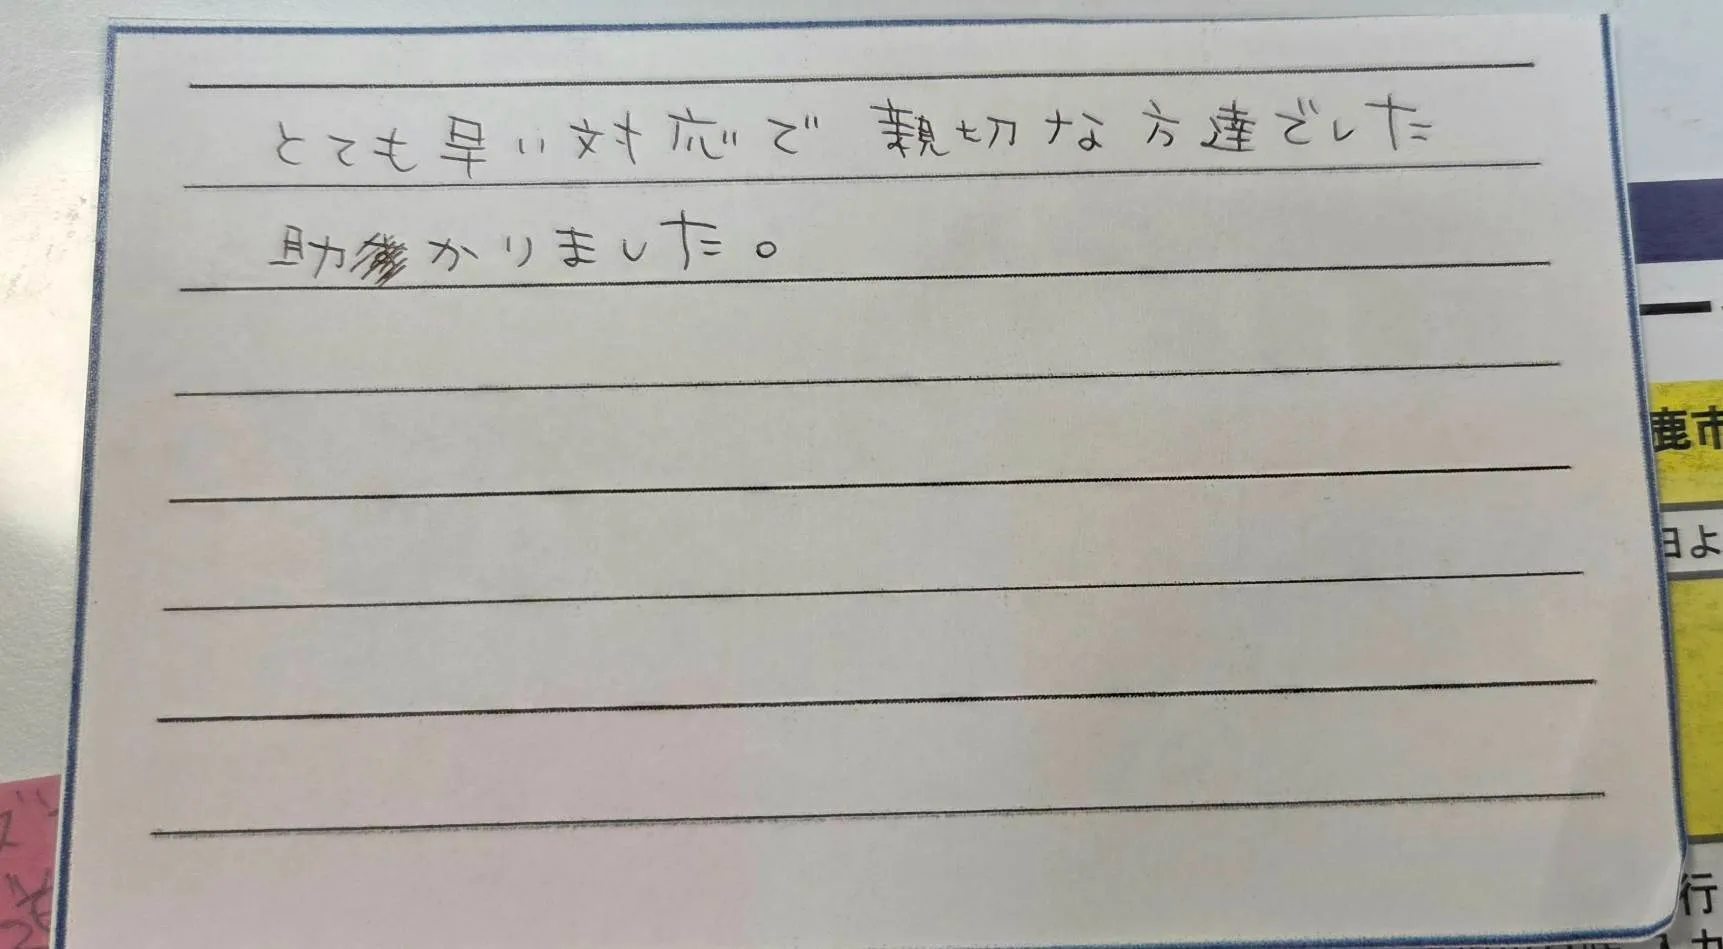 とても早い対応で 親切な方達でした
助かりました。
鹿市
日よ
行